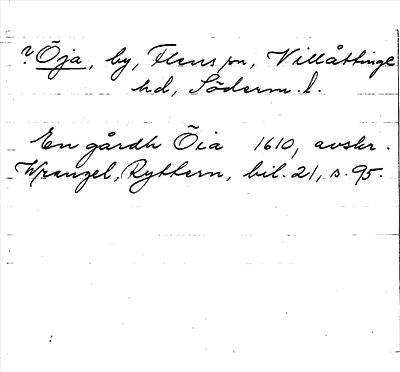 ? Öja, by, Flens sn, Villåttinge
hd, Söderm. l.
En gårdh Öia 1610, avskr.
Wrangel, Ryttern, bil. 21, s. 95.